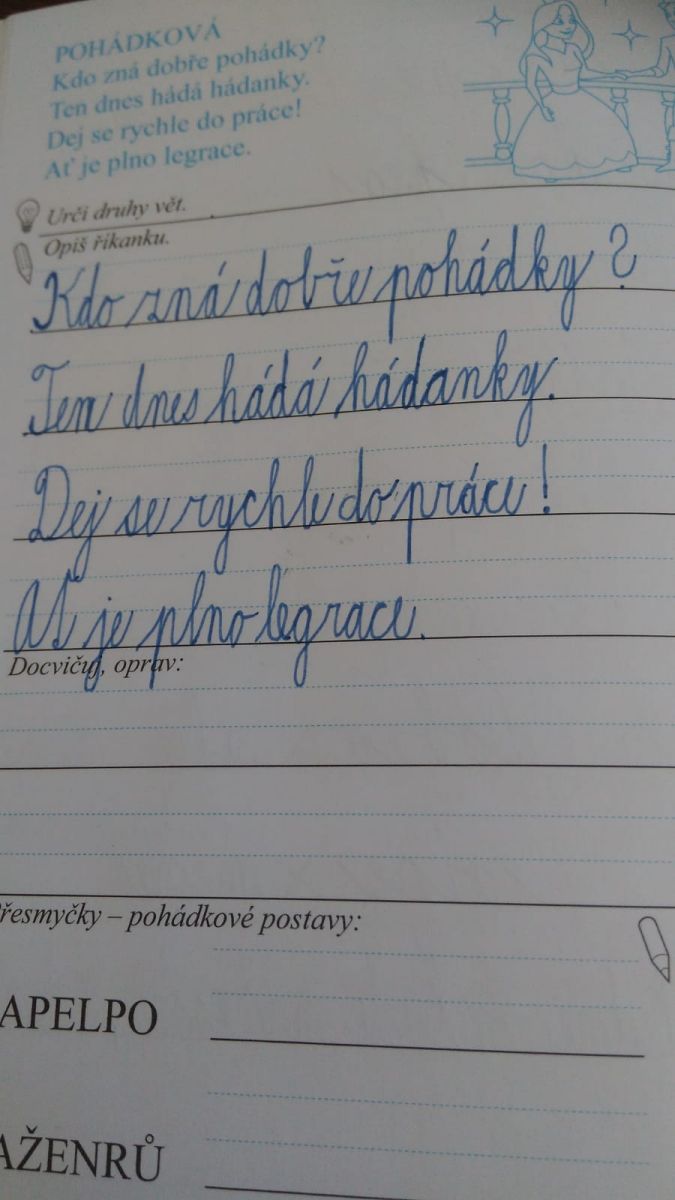 POHÁDKOVÁ
Kdo zná dobře pohádky?
Ten dnes hádá hádanky.
Dej se rychle do práce!
Ať je plno legrace.
Urči druhy vět.
Opiš říkanku.
Kdo zná dobře pohádky?
Ten dnes hádá hádanky.
Dej se rychle do práce!
Ať je plno legrace.
Docvičuj, oprav:
Přesmyčky – pohádkové postavy:
APELPO
AŽENRŮ